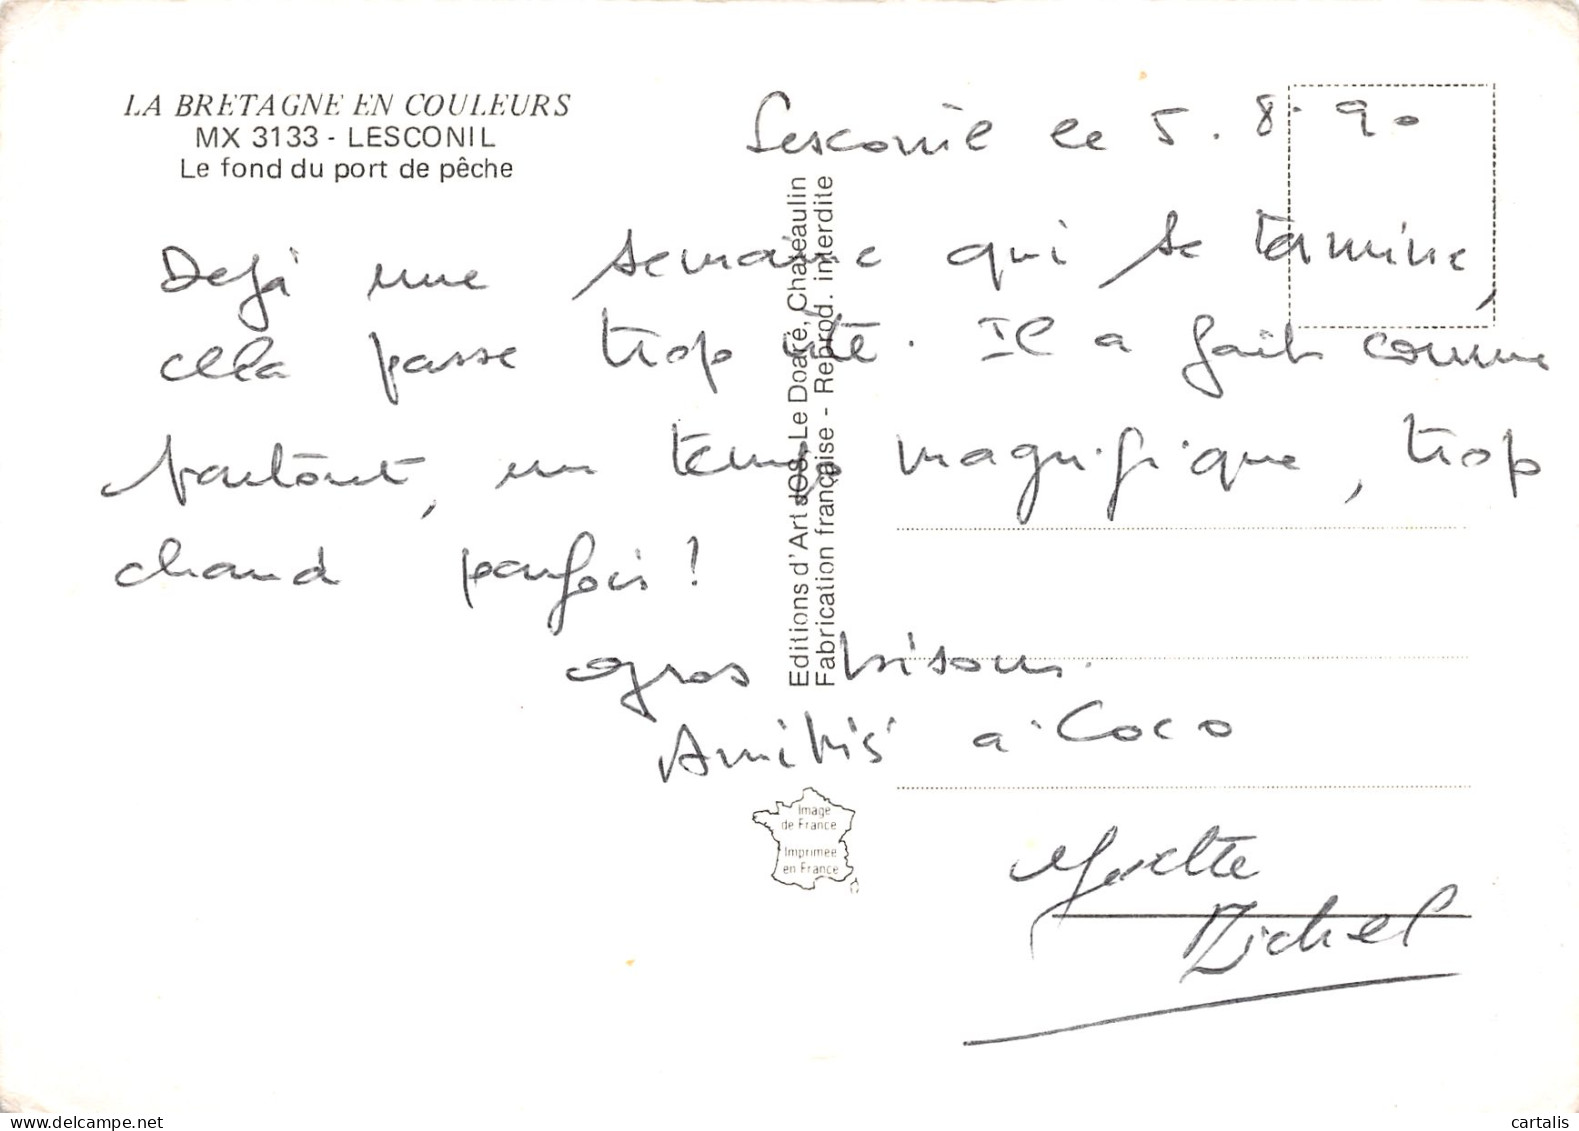 LA BRETAGNE EN COULEURS
MX 3133 - LESCONIL
Le fond du port de pêche
Lesconil le 5.8.90
Dejà une semaine qui se termine,
cela passe trop vite. Il a fait comme
partout, un temps magnifique, trop
chaud parfois!
gros bisous.
Amitiés à Coco
Michel
Editions d'Art JOS Le Doaré, Chateaulin
Fabrication française - Reprod. interdite
Image
de France
Imprimée
en France
delcampe.net
cartalis